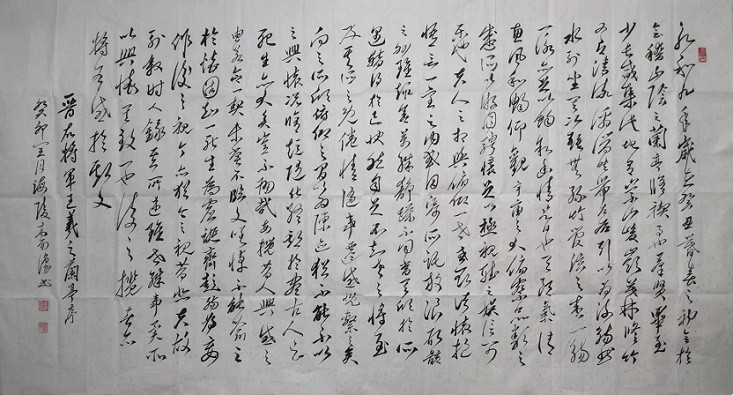 永和九年歲在癸丑暮春之初會於
會稽山陰之蘭亭脩禊事也羣賢畢至
少長咸集此地有崇山峻嶺茂林脩竹
又有清流激湍映帶左右引以為流觴曲
水列坐其次雖無絲竹管弦之盛一觴
一詠亦足以暢敘幽情是日也天朗氣清
惠風和暢仰觀宇宙之大俯察品類之
盛所以遊目騁懷足以極視聽之娛信可
樂也夫人之相與俯仰一世或取諸懷抱
悟言一室之內或因寄所託放浪形骸
之外雖趣舍萬殊靜躁不同當其欣於所
遇暫得於己快然自足不知老之將至
及其所之既倦情隨事遷感慨繫之矣
向之所欣俯仰之間為陳迹猶不能不以
之興懷況脩短隨化終期於盡古人云
死生亦大矣豈不痛哉每攬昔人興感之
由若合一契未嘗不臨文嗟悼不能喻之
於懷固知一死生為虛誕齊彭殤為妄
作後之視今亦猶今之視昔悲夫故
列敘時人錄其所述雖世殊事異所
以興懷其致一也後之攬者亦
將有感於斯文
晉右將軍王羲之蘭亭序
癸卯月海陵書